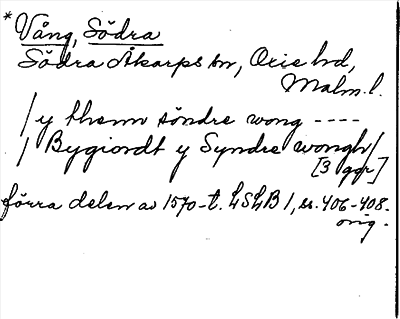 * Vång, Södra
Södra Åkarps sn, Oxie hd,
Malm. l.
/ y thenn söndre wong ----
/ Bygiordt y Syndre wongh /
[3 ggr]
förra delen av 1570-t. LSLB 1, s. 406-408.
orig.